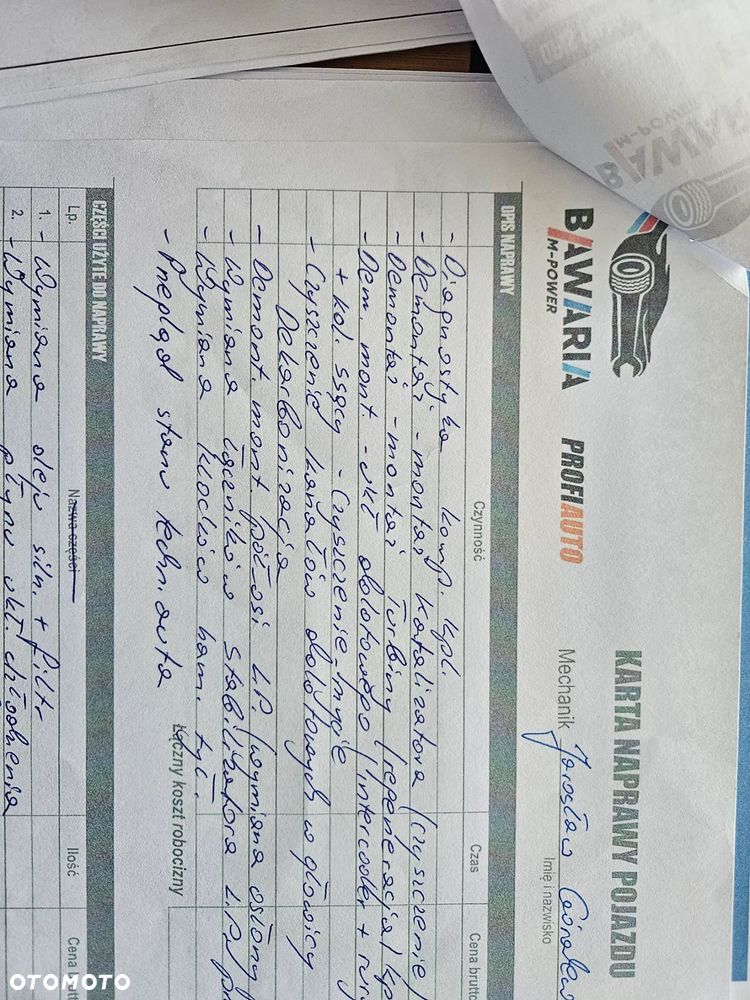 BAWARIA
M-POWER
PROFIAUTO
KARTA NAPRAWY POJAZDU
Mechanik Jarosław
Imię i nazwisko
OPIS NAPRAWY
Czynność
Czas
Cena brutto
- Diagnostyka komp. kpl.
- Demontaż - montaż katalizatora (czyszczenie)
- Demontaż - montaż Turbiny (regeneracja) kp
- Dem. mont - ukł dolotowego (intercooler + rury
+ kol. ssący - Czyszczenie - mycie
- Czyszczenie kanałów dolotowych w głowicy
Dekarbonizacja
- Demont. mont. półosi L.P. (wymiana osłony
- Wymiana łączników stabilizatora L.P.
- Wymiana klocków ham. tył.
- Przegląd stanu techn. auta
Łączny koszt robocizny
CZĘŚCI UŻYTE DO NAPRAWY
Lp.
Nazwa części
Ilość
Cena brutto
1. - Wymiana oleju siln. + filtr
2. - Wymiana płynu ukł. chłodzenia
BAWARIA
M-POWER
OTOMOTO